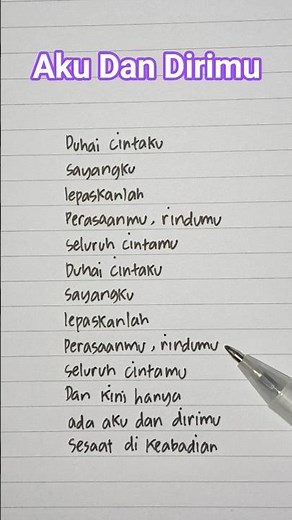 Aku Dan Dirimu
Duhai cintaku
sayangku
lepaskanlah
Perasaanmu, rindumu
seluruh cintamu
Duhai cintaku
sayangku
lepaskanlah
Perasaanmu, rindumu
seluruh cintamu
Dan kini hanya
ada aku dan dirimu
sesaat di keabadian